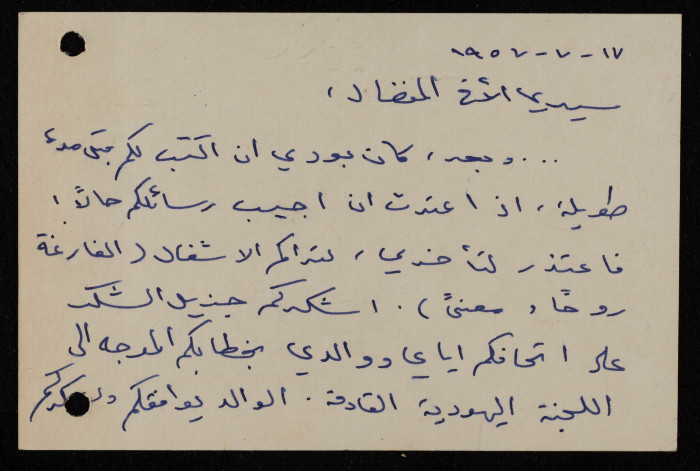 ١٧-٧-١٩٥٧
سيدي الأخ المفضال،
... وبعد، كان بودي ان اكتب لكم قبل مدة
طويلة، اذ اعتدت ان اجيب رسائلكم حالاً،
فاعتذر لتأخري، لتراكم الاشغال (الفارغة
روحًا ومعنىً). اشكركم جزيل الشكر
على اتحافكم اياي ووالدي بخطابكم الموجه الى
اللجنة اليهودية القادمة. الوالد يوافقكم